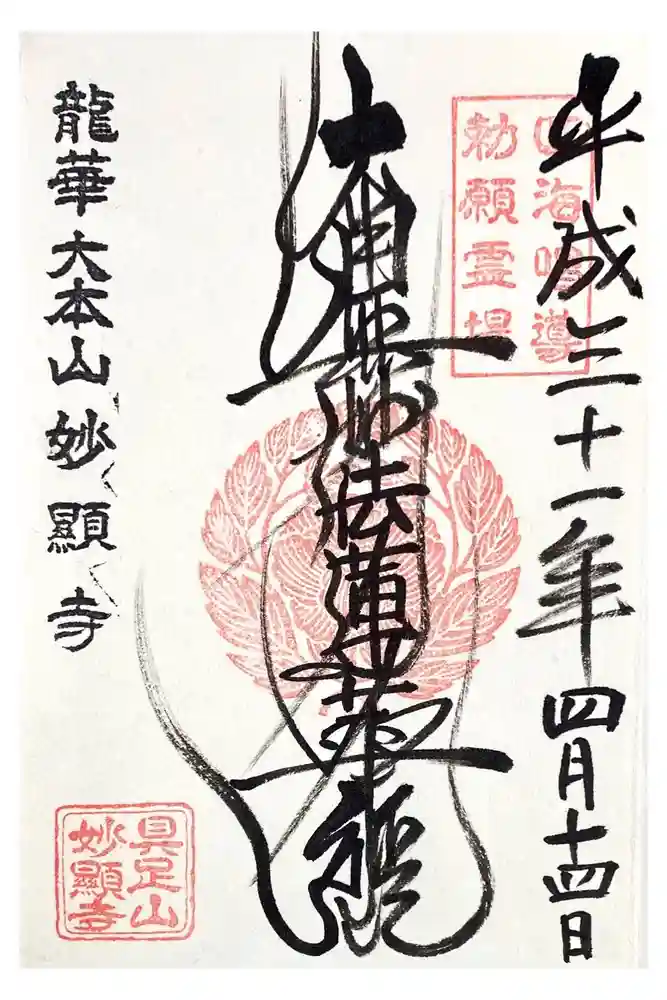 平成三十一年四月十四日
四海唱導
勅願霊場
南無妙法蓮華経
龍華大本山妙顯寺
具足山
妙顯寺